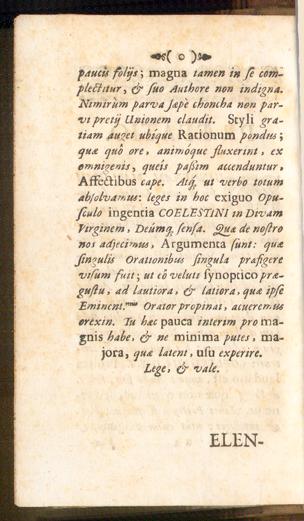 ( o )
paucis folijs; magna tamen in se com-
plectitur, & suo Authore non indigna.
Nimirùm parva sæpè choncha non par-
vi pretij Unionem claudit. Styli gra-
tiam auget ubique Rationum pondus;
quæ quô ore, animóque fluxerint, ex
omnigenis, queis paßim accenduntur,
Affectibus cape. Atq, ut verbo totum
absolvamus: leges in hoc exiguo Opu-
sculo ingentia COELESTINI in Divam
Virginem, Deúmq, sensa. Quæ de nostro
nos adjecimus, Argumenta sunt: quæ
singulis Orationibus singula præfigere
visum fuit; ut cô veluti synoptico præ-
gustu, ad lautiora, & latiora, quæ ipse
Eminent.mus Orator propinat, acueremus
orexin. Tu hæc pauca interim pro ma-
gnis habe, & ne minima putes, ma-
jora, quæ latent, usu experire.
Lege, & vale.
ELEN-